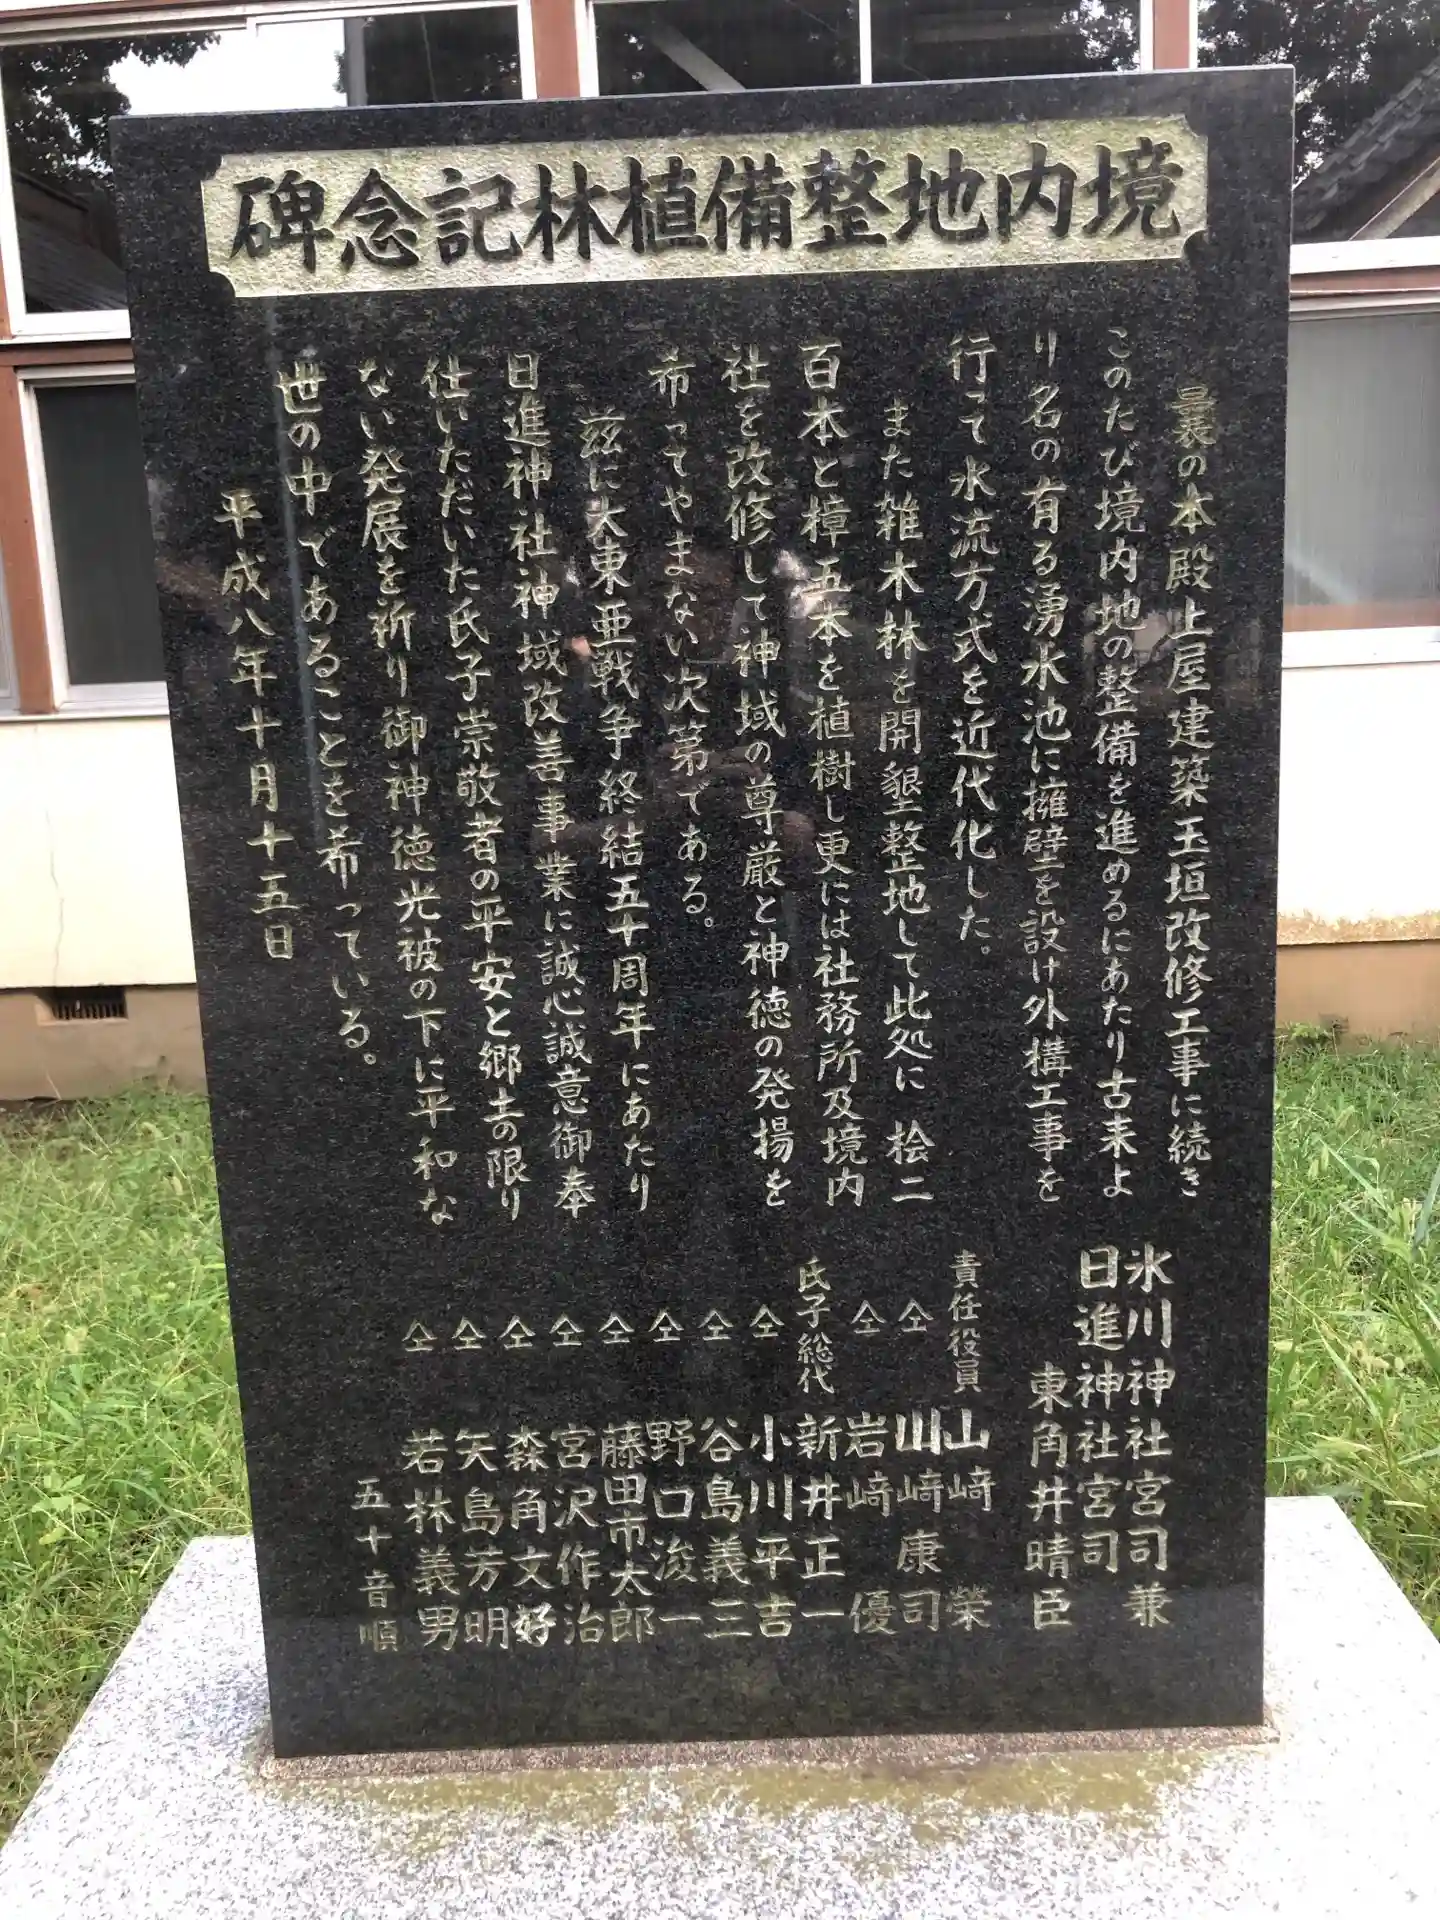 境内地整備植林記念碑
曩の本殿上屋建築玉垣改修工事に続き
このたび境内地の整備を進めるにあたり古来よ
り名の有る湧水池に擁壁を設け外構工事を
行って水流方式を近代化した。
また雑木林を開墾整地して此処に桧二
百本と樟五本を植樹し更には社務所及境内
社を改修して神域の尊厳と神徳の発揚を
希ってやまない次第である。
茲に大東亜戦争終結五十周年にあたり
日進神社神域改善事業に誠心誠意御奉
仕いただいた氏子崇敬者の平安と郷土の限り
ない発展を祈り御神徳光被の下に平和な
世の中であることを希っている。
平成八年十月十五日
氷川神社宮司兼
日進神社宮司
東角井晴臣
責任役員 山﨑 榮
仝 川﨑康司
仝 岩﨑 優
氏子総代 新井正一
仝 小川平吉
仝 谷島義三
仝 野口浚一
仝 藤田市太郎
仝 宮沢作治
仝 森角文好
仝 矢島芳明
仝 若林義男
五十音順